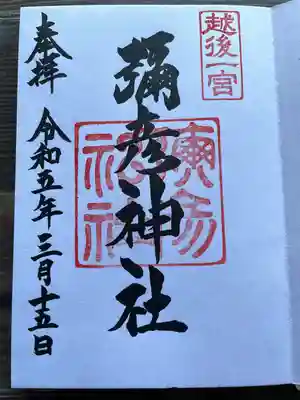 越後一宮
彌彦神社
奉拝
令和五年三月十五日